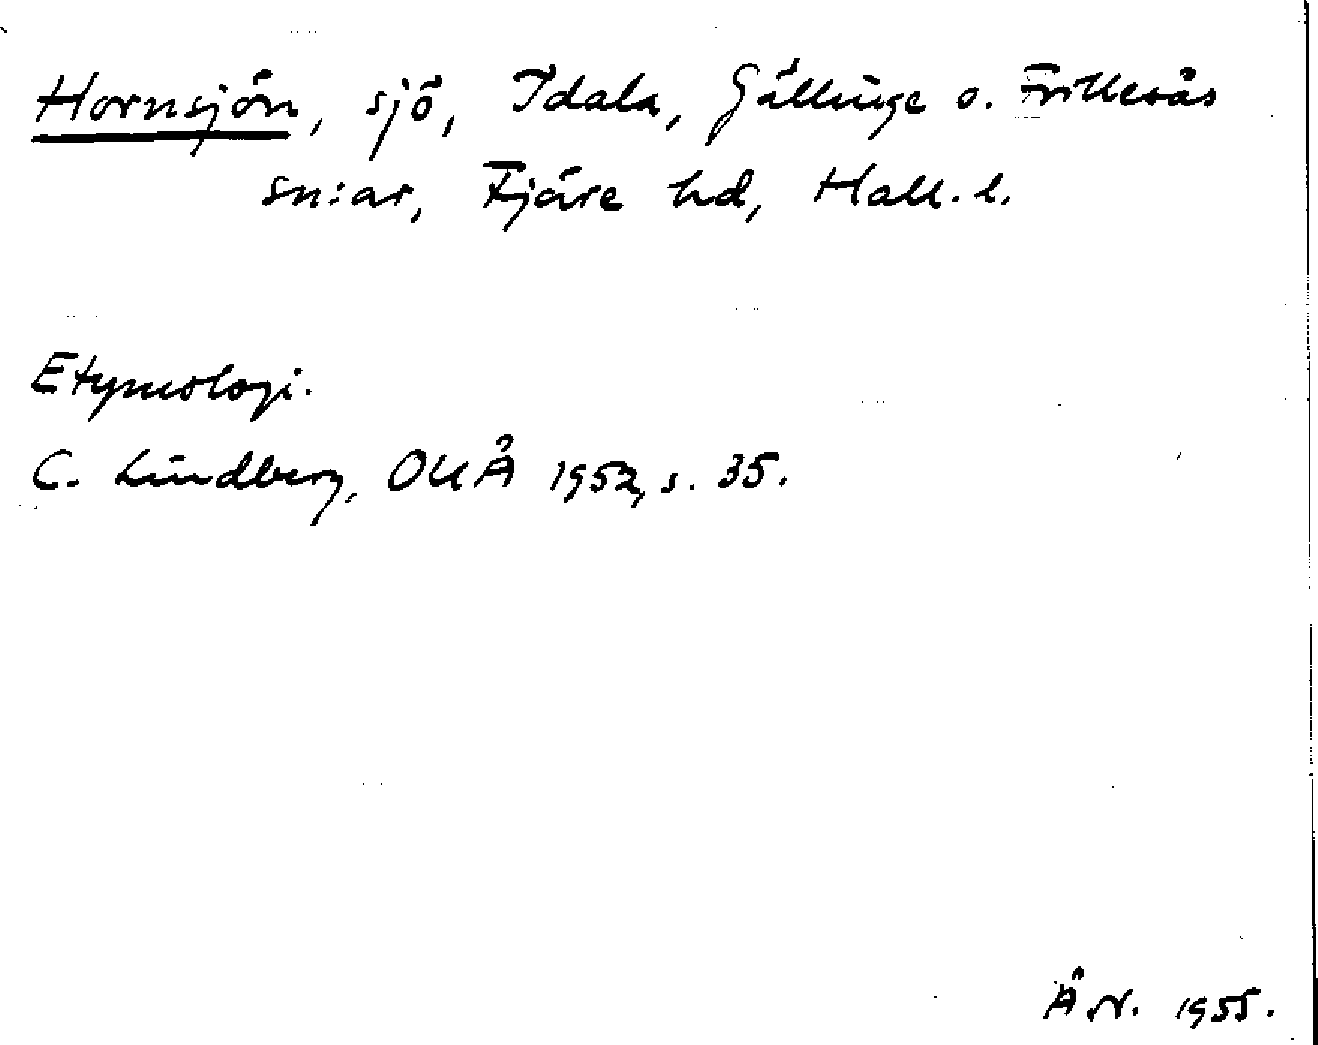 Hornsjön, sjö, Idala, Gällinge o. Frillesås
sn:ar, Fjäre hd, Hall. l.
Etymologi.
C. Lindberg, OUÅ 1952, s. 35.
Å.N. 1955.